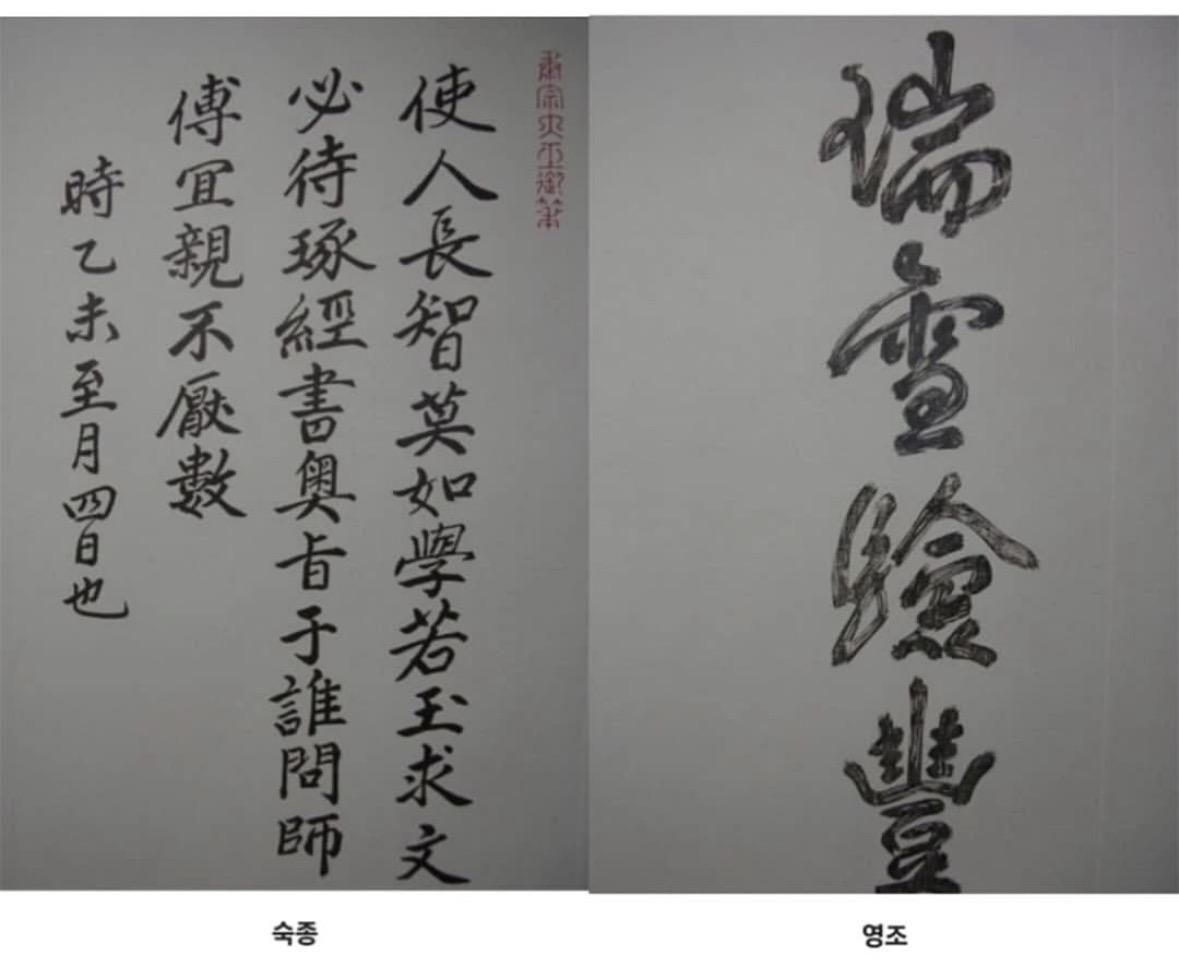 肅宗大王御筆
使人長智莫如學若玉求文
必待琢經書奧旨于誰問師
傅宜親不厭數
時乙未至月四日也
瑞雪驗豐
숙종
영조